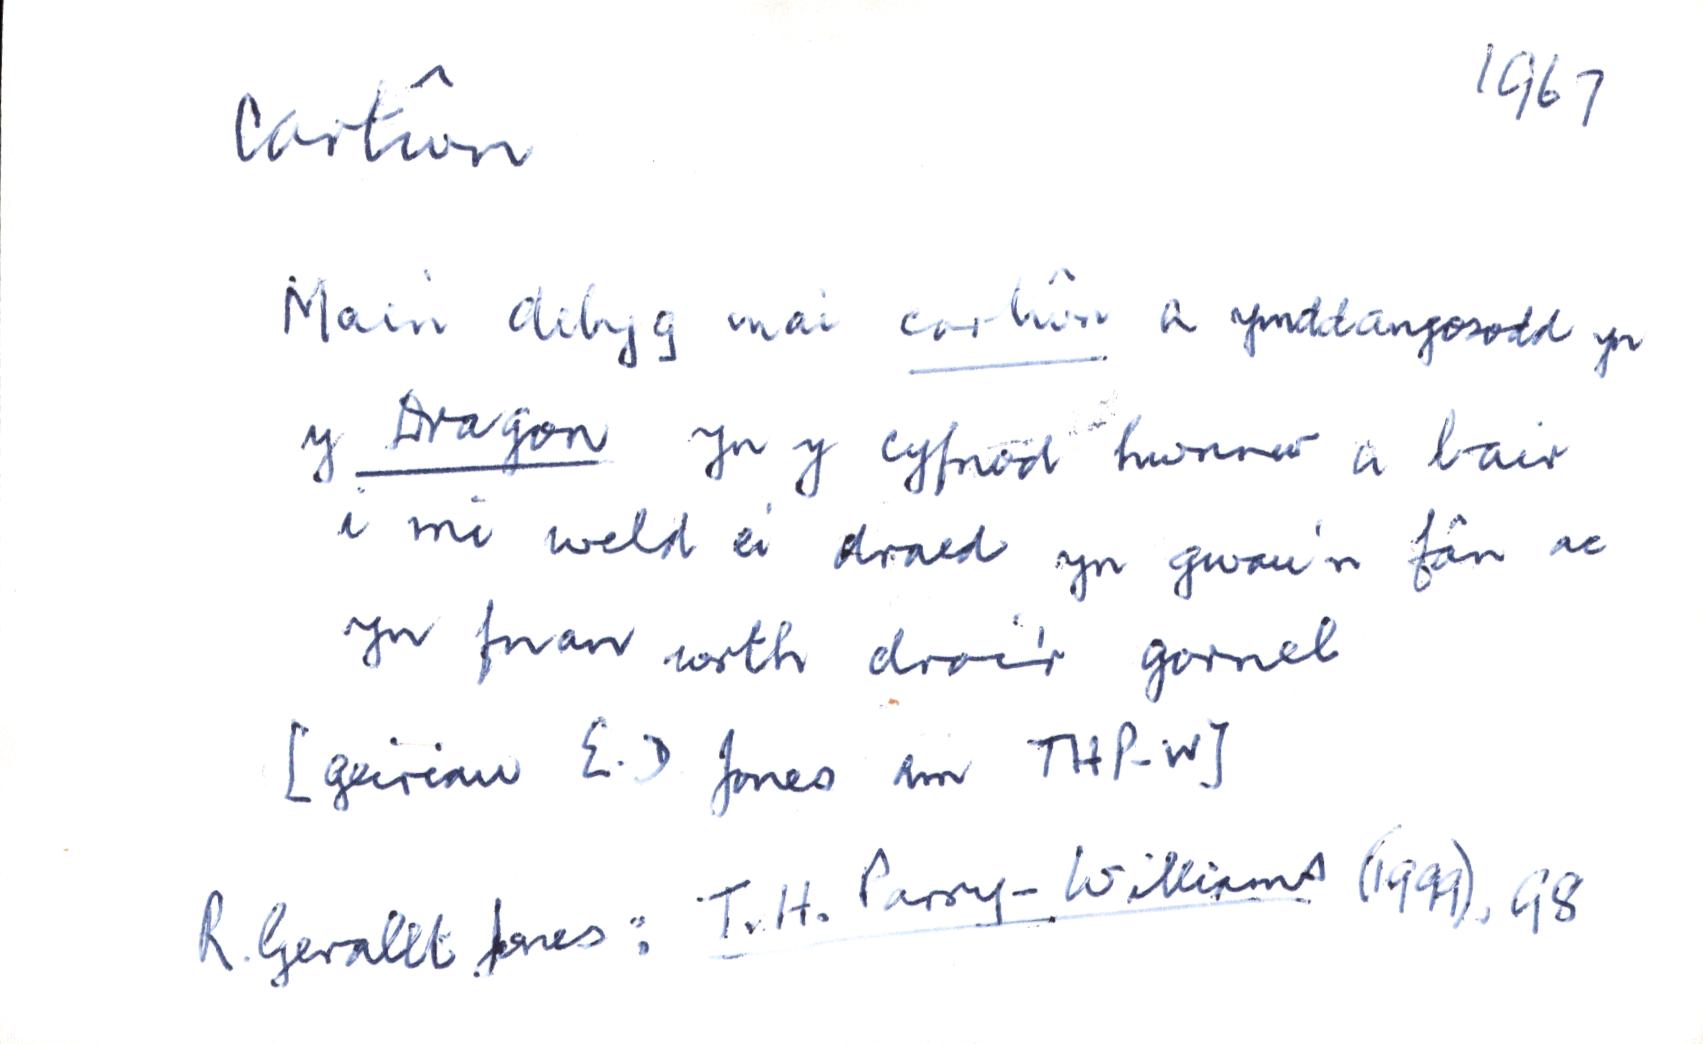 1967
Cartŵn
Mae'n debyg mai cartŵn a ymddangosodd yn
y Dragon yn y cyfnod hwnnw a bair
i mi weld ei draed yn gwau'n fân ac
yn fuan wrth droi'r gornel
[geiriau E.D Jones am THP-W]
R. Gerallt Jones: T.H. Parry-Williams (1999), 98